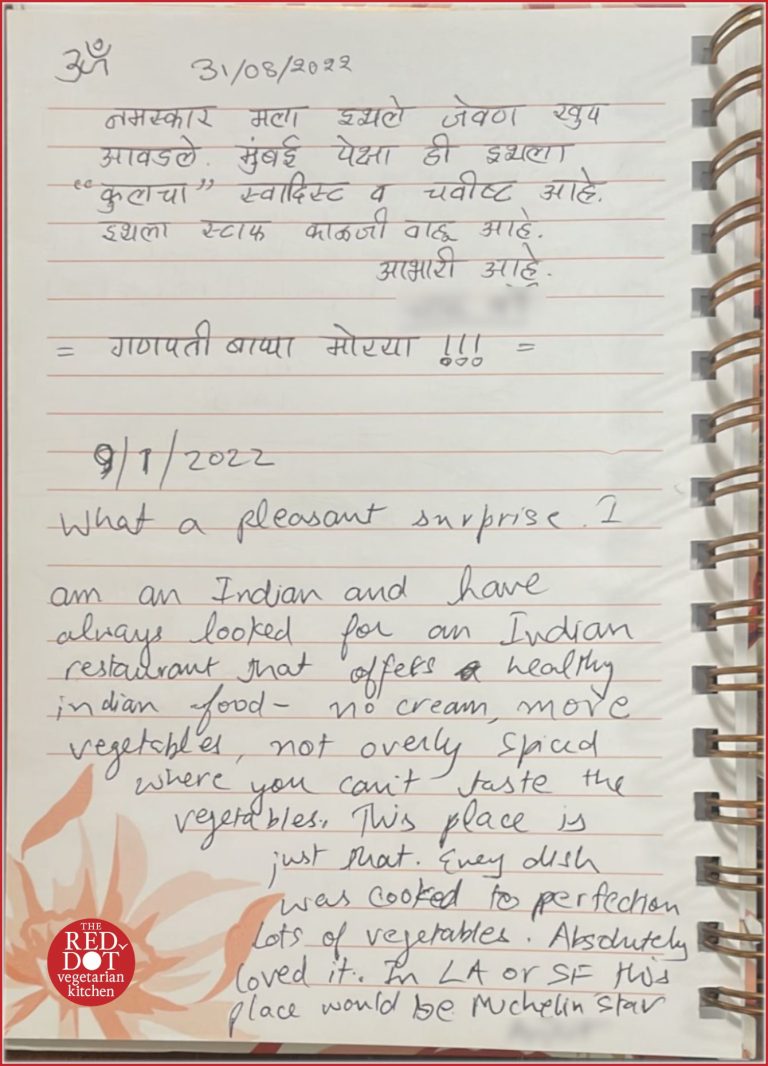 ॐ 31/08/2022
नमस्कार मला इथले जेवण खुप
आवडले. मुंबई पेक्षा ही इथला
“कुलचा” स्वादिस्ट व चवीष्ट आहे.
इथला स्टाफ काळजी वाहू आहे.
आभारी आहे.
= गणपती बाप्पा मोरया !!! =
9/1/2022
What a pleasant surprise. I
am an Indian and have
always looked for an Indian
restaurant that offers healthy
indian food- no cream, more
vegetables, not overly spiced
where you can't taste the
vegetables. This place is
just that. Every dish
was cooked to perfection
Lots of vegetables. Absolutely
loved it. In LA or SF this
place would be Michelin Star
THE
RED
DOT
vegetarian
kitchen